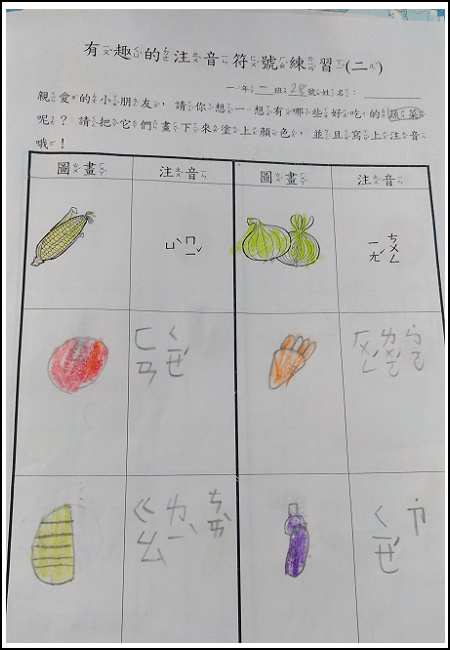 有趣的注音符號練習(二)
一年一班28號姓名：
親愛的小朋友，請你想一想有哪些好吃的蔬菜
呢？請把它們畫下來塗上顏色，並且寫上注音
哦！
圖畫 注音 圖畫 注音
ㄩˋ ㄇㄧˇ
ㄧㄤˊ ㄘㄨㄥ
ㄈㄢ ㄑㄧㄝˊ
ㄏㄨˊ ㄌㄨㄛˊ ˙ㄅㄛ
ㄍㄠ ㄌㄧˋ ㄘㄞˋ
ㄑㄧㄝˊ ˙ㄗ